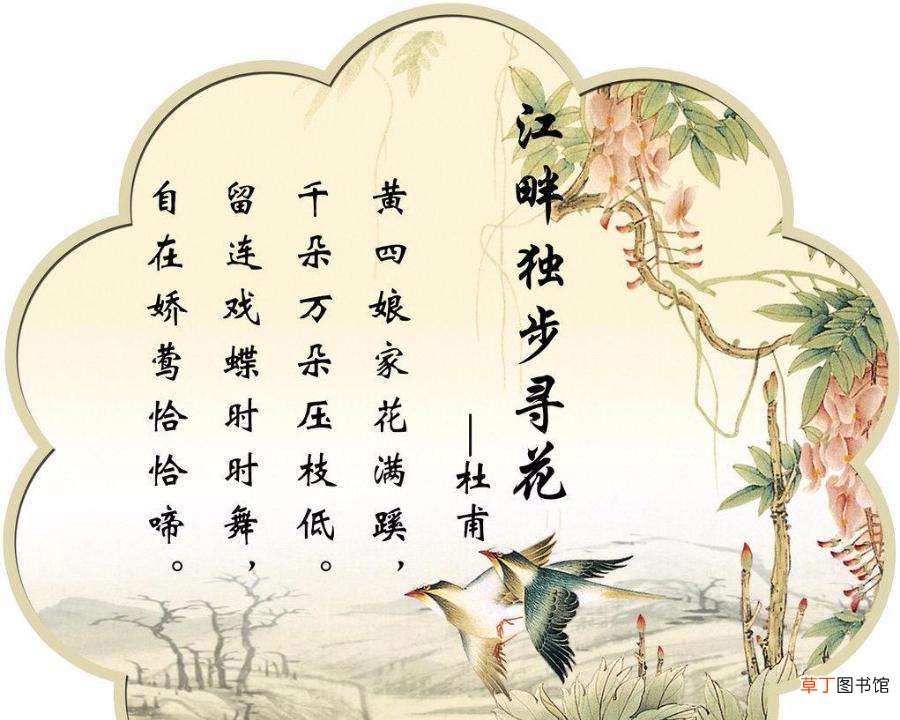 江畔独步寻花
—杜甫
黄四娘家花满蹊，
千朵万朵压枝低。
留连戏蝶时时舞，
自在娇莺恰恰啼。
草丁图书馆